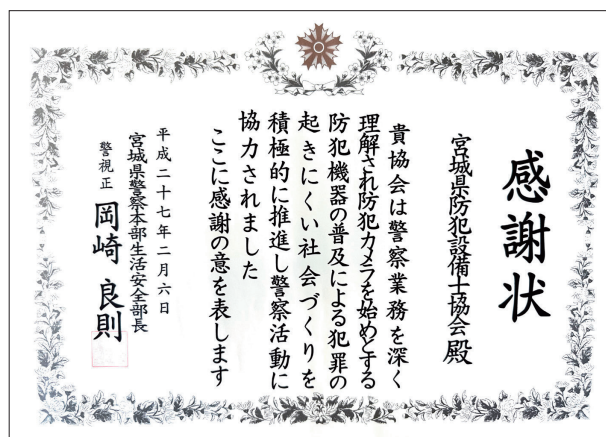 感謝状
宮城県防犯設備士協会殿
貴協会は警察業務を深く
理解され防犯カメラを始めとする
防犯機器の普及による犯罪の
起きにくい社会づくりを
積極的に推進し警察活動に
協力されました
ここに感謝の意を表します
平成二十七年二月六日
宮城県警察本部生活安全部長
警視正 岡崎良則